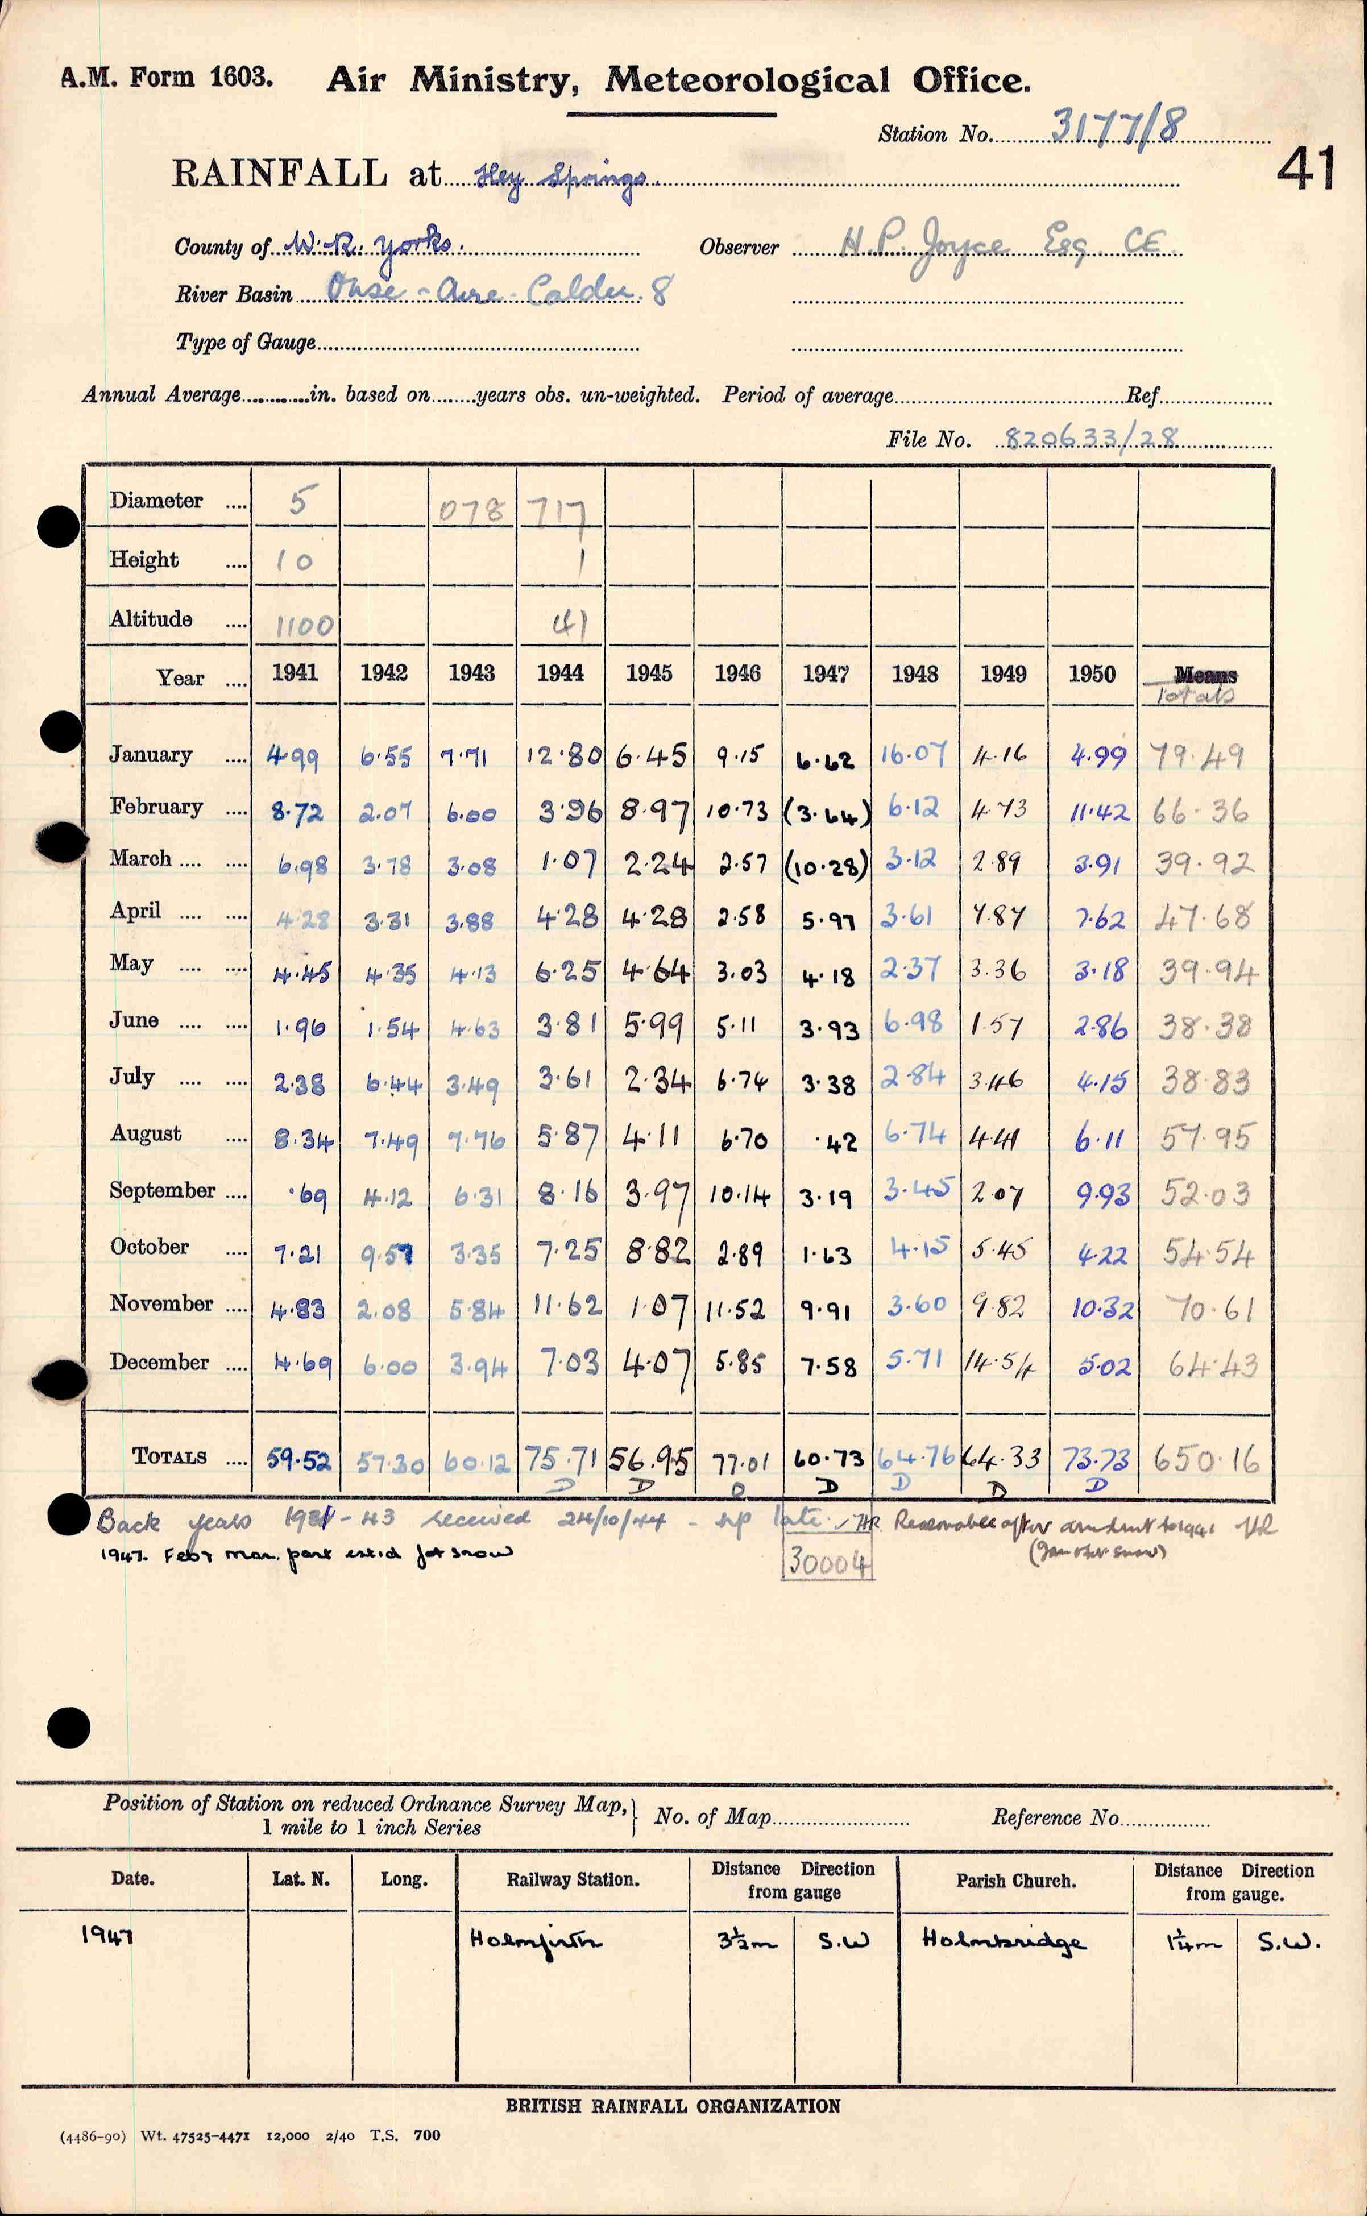 A.M. Form 1603. Air Ministry, Meteorological Office.
Station No. 3177/8
41
RAINFALL at Hey Springs.
County of W.R. Yorks. Observer H.P. Joyce Esq CE.
River Basin Ouse - Aire - Calder. 8
Type of Gauge
Annual Average in. based on years obs. un-weighted. Period of average Ref
File No. 820633/28
Diameter .... 5 078 717
Height .... 10 1
Altitude .... 1100 41
Year .... 1941 1942 1943 1944 1945 1946 1947 1948 1949 1950 Means Totals
January .... 4.99 6.55 7.71 12.80 6.45 9.15 6.62 16.07 4.16 4.99 79.49
February .... 8.72 2.07 6.00 3.96 8.97 10.73 (3.64) 6.12 4.73 11.42 66.36
March .... .... 6.98 3.78 3.08 1.07 2.24 2.57 (10.28) 3.12 2.89 3.91 39.92
April .... .... 4.28 3.31 3.88 4.28 4.28 2.58 5.97 3.61 7.87 7.62 47.68
May .... .... 4.45 4.35 4.13 6.25 4.64 3.03 4.18 2.37 3.36 3.18 39.94
June .... .... 1.96 1.54 4.63 3.81 5.99 5.11 3.93 6.98 1.57 2.86 38.38
July .... .... 2.38 6.44 3.49 3.61 2.34 6.74 3.38 2.84 3.46 4.15 38.83
August .... 8.34 7.49 7.76 5.87 4.11 6.70 .42 6.74 4.41 6.11 57.95
September .... .69 4.12 6.31 8.16 3.97 10.14 3.19 3.45 2.07 9.93 52.03
October .... 7.21 9.57 3.35 7.25 8.82 2.89 1.63 4.15 5.45 4.22 54.54
November .... 4.83 2.08 5.84 11.62 1.07 11.52 9.91 3.60 9.82 10.32 70.61
December .... 4.69 6.00 3.94 7.03 4.07 5.85 7.58 5.71 14.54 5.02 64.43
TOTALS .... 59.52 57.30 60.12 75.71 56.95 77.01 60.73 64.76 64.33 73.73 650.16
D D D D D D D
Back years - 43 received 24/10/44 - late. Reasonable after to 1941 HR
1947. Feb & Mar. part est'd for snow
30004
Position of Station on reduced Ordnance Survey Map, No. of Map Reference No
1 mile to 1 inch Series
Date. Lat. N. Long. Railway Station. Distance Direction from gauge Parish Church. Distance Direction from gauge.
1947 Holmfirth 3½m S.W Holmbridge 1¼m S.W.
BRITISH RAINFALL ORGANIZATION
(4486-90) Wt. 47525-4471 12,000 2/40 T.S. 700